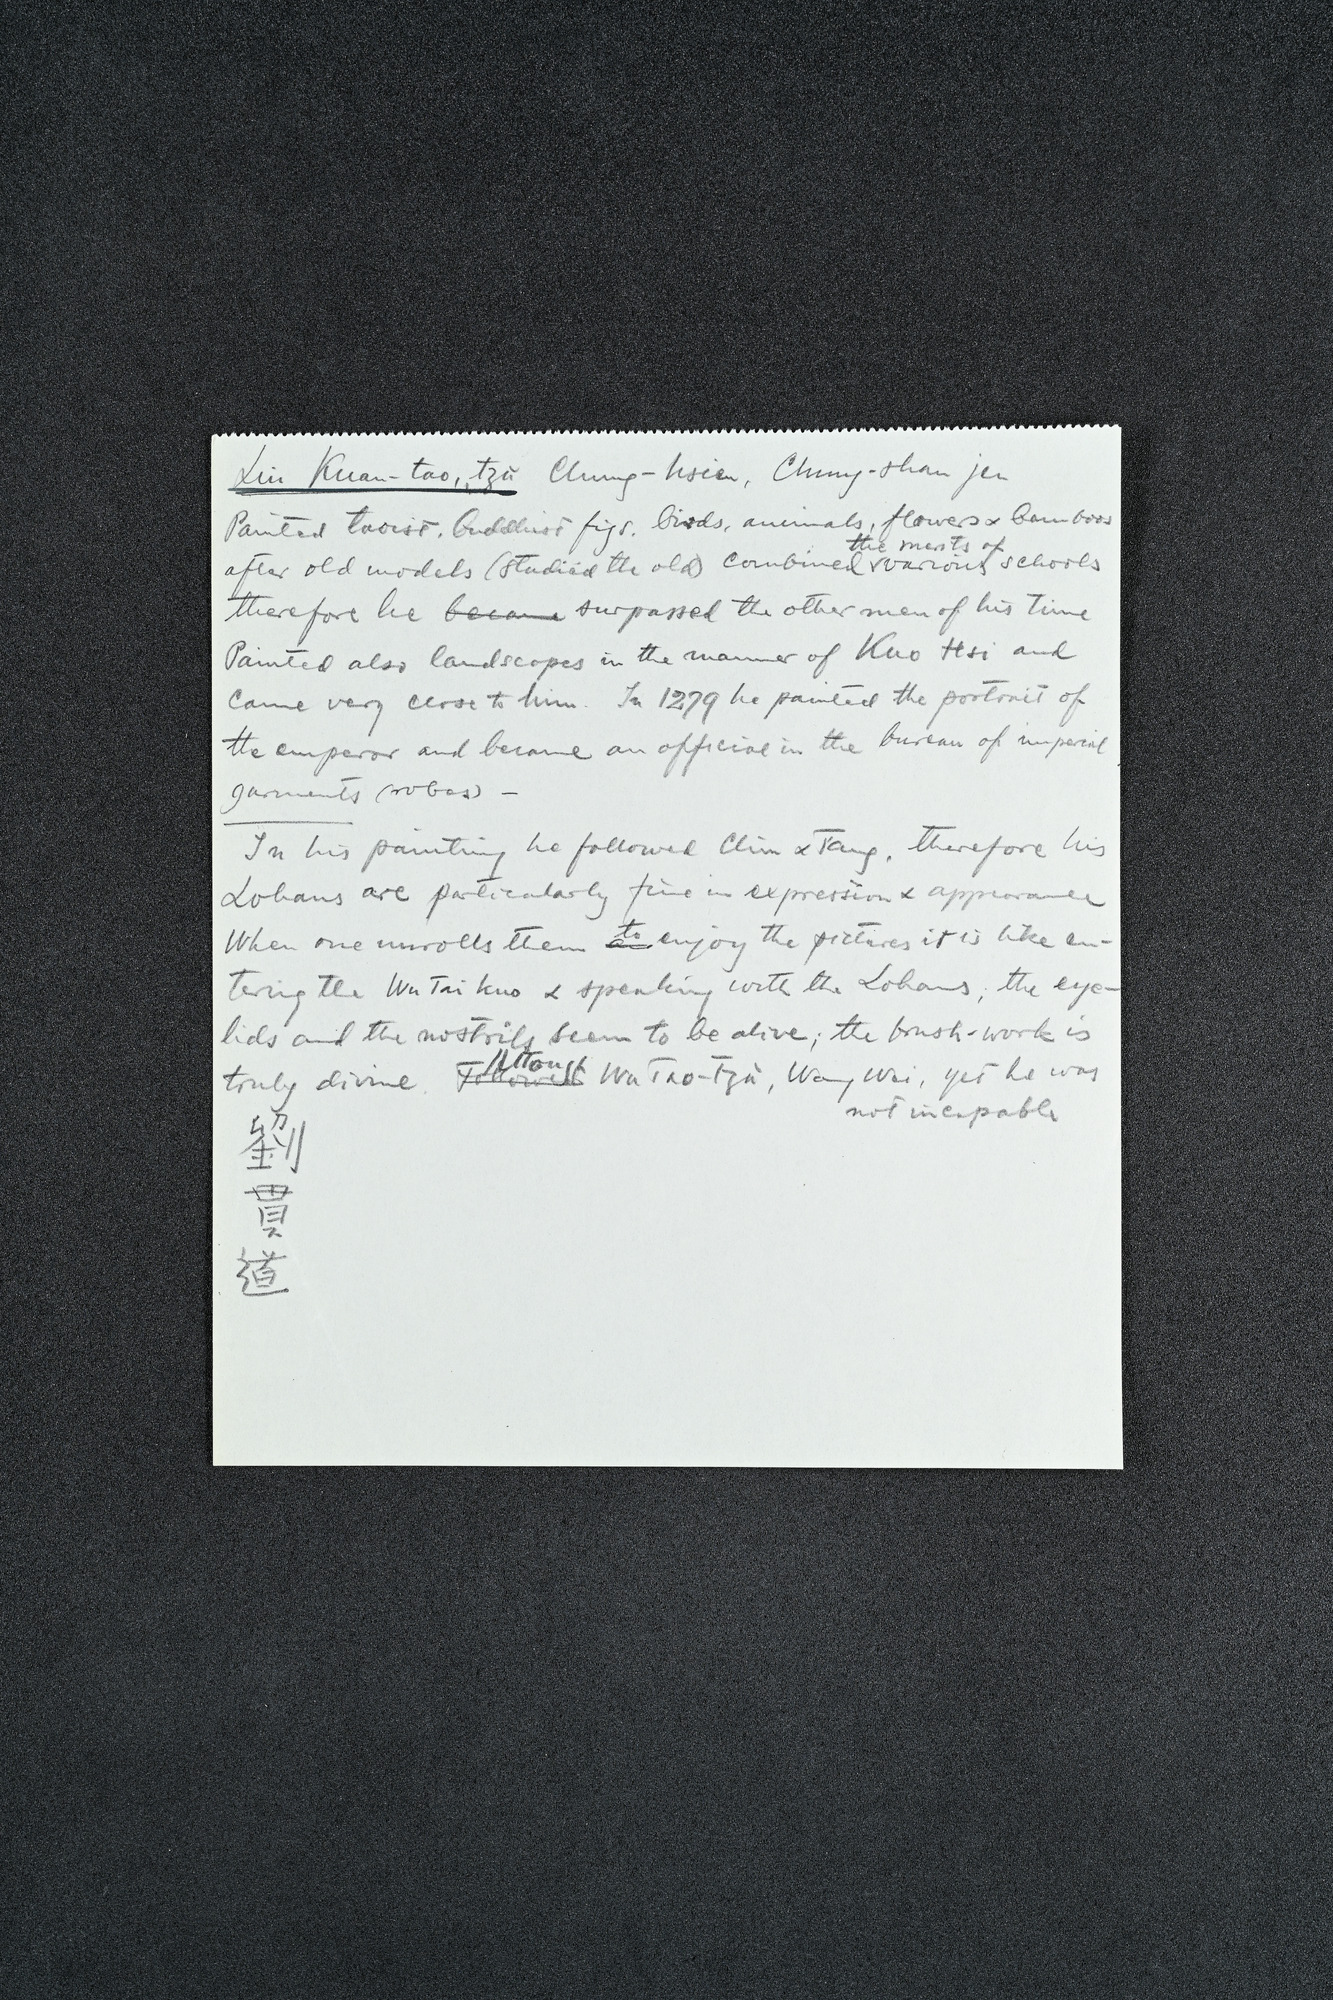 Liu Kuan-tao, tzŭ Chung-hsien, Chung-shan jen
Painted taoist, buddhist figs. birds, animals, flowers & bamboos
the merits of
after old models (studied the old) combined various schools
therefore he became surpassed the other men of his time
Painted also landscapes in the manner of Kuo Hsi and
came very close to him. In 1279 he painted the portrait of
the emperor and became an official in the bureau of imperial
garments (robes) –
In his painting he followed Chin & Tang, therefore his
Lohans are particularly fine in expression & appearance
When one unrolls them to enjoy the pictures it is like en-
tering the Wu Tai kuo & speaking with the Lohans; the eye-
lids and the nostrils seem to be alive; the brush-work is
truly divine. Followed Althoug Wu Tao-Tzŭ, Wang Wei, yet he was
not incapable
劉
貫
道